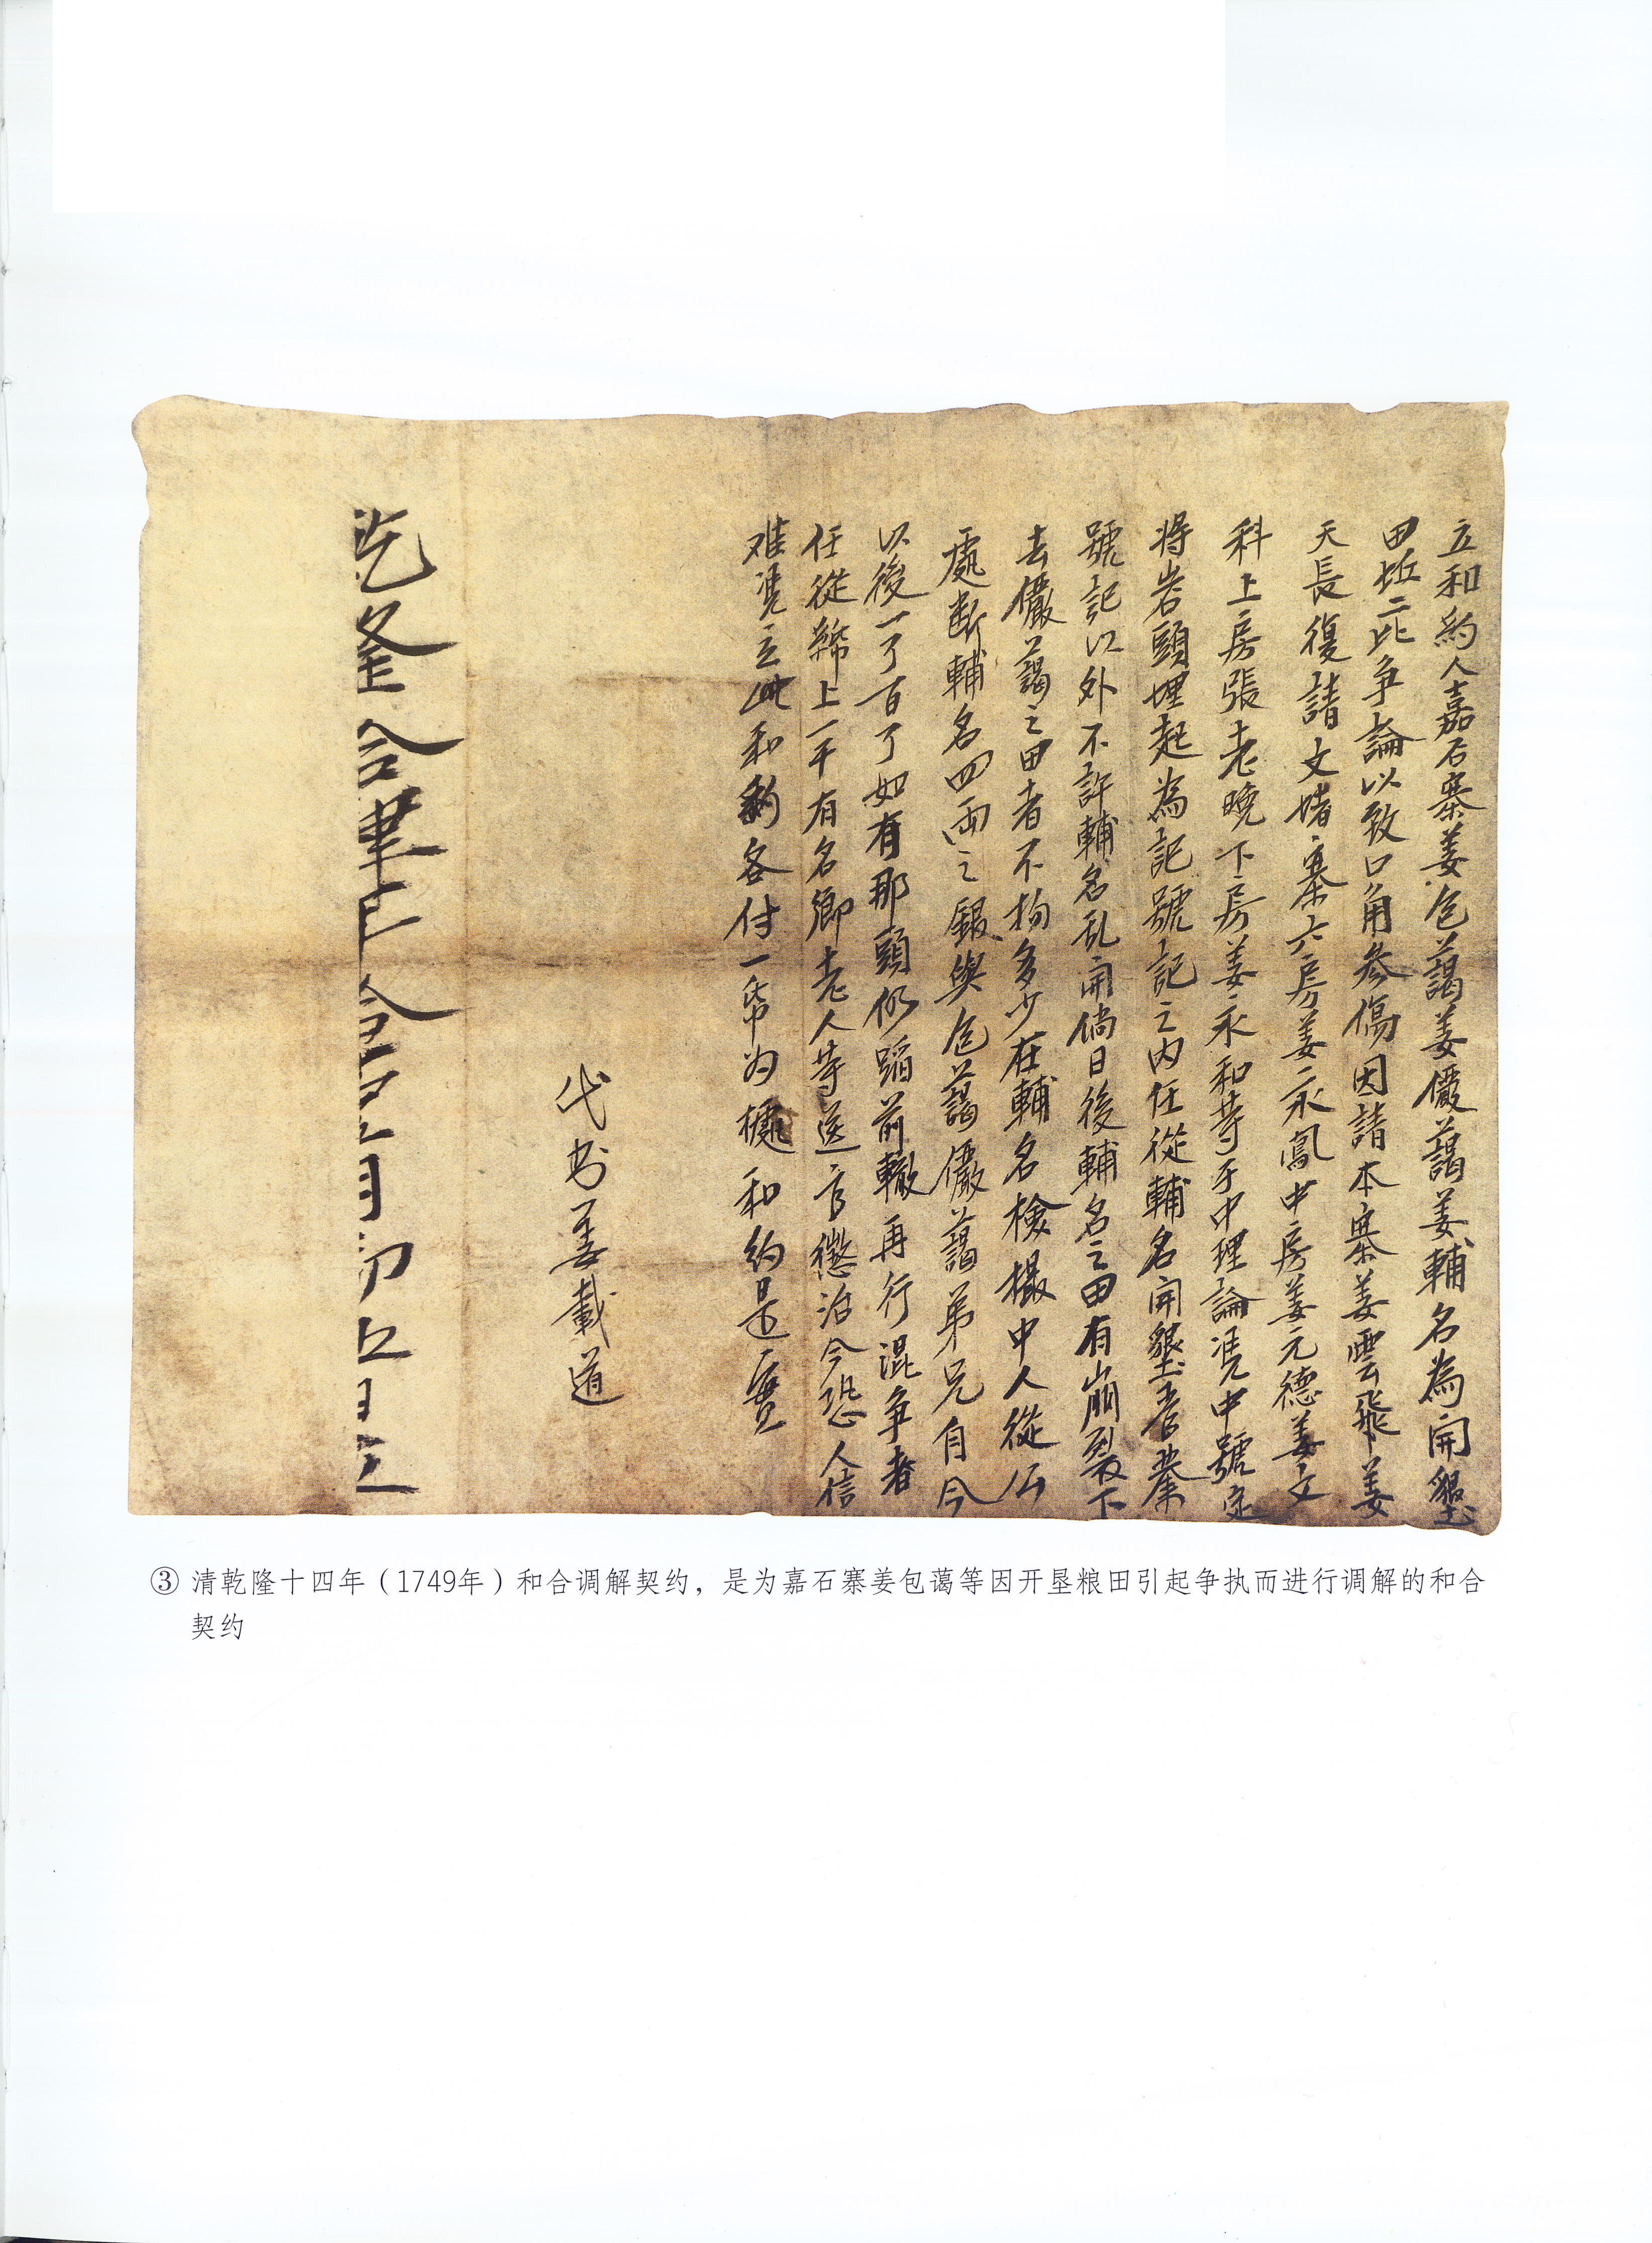 立和約人嘉石寨姜包藹姜儼藹姜輔名為開墾
田坵二比争論以致口角參傷因請本寨姜雲飛姜
天長復請文堵寨六房姜永鳳中房姜元德姜文
科上房張老晚下房姜永和等于中理論凴中號定
將岩頭埋起為記號記之内任從輔名開墾耆業
號記以外不許輔名乱開倘日後輔名之田有崩裂下
去儼藹之田者不拘多少在輔名檢撮中人從公
處断輔名四両之銀與包藹儼藹弟兄自今
以後一了百了如有那頭仍蹈前轍再行混争者
任從絺上一平有名鄉老人等送官懲治今恐人信
难凴立此和約各付一帋为櫖和約是實
代书姜載道
③ 清乾隆十四年（1749年）和合调解契约，是为嘉石寨姜包蔼等因开垦粮田引起争执而进行调解的和合
契约